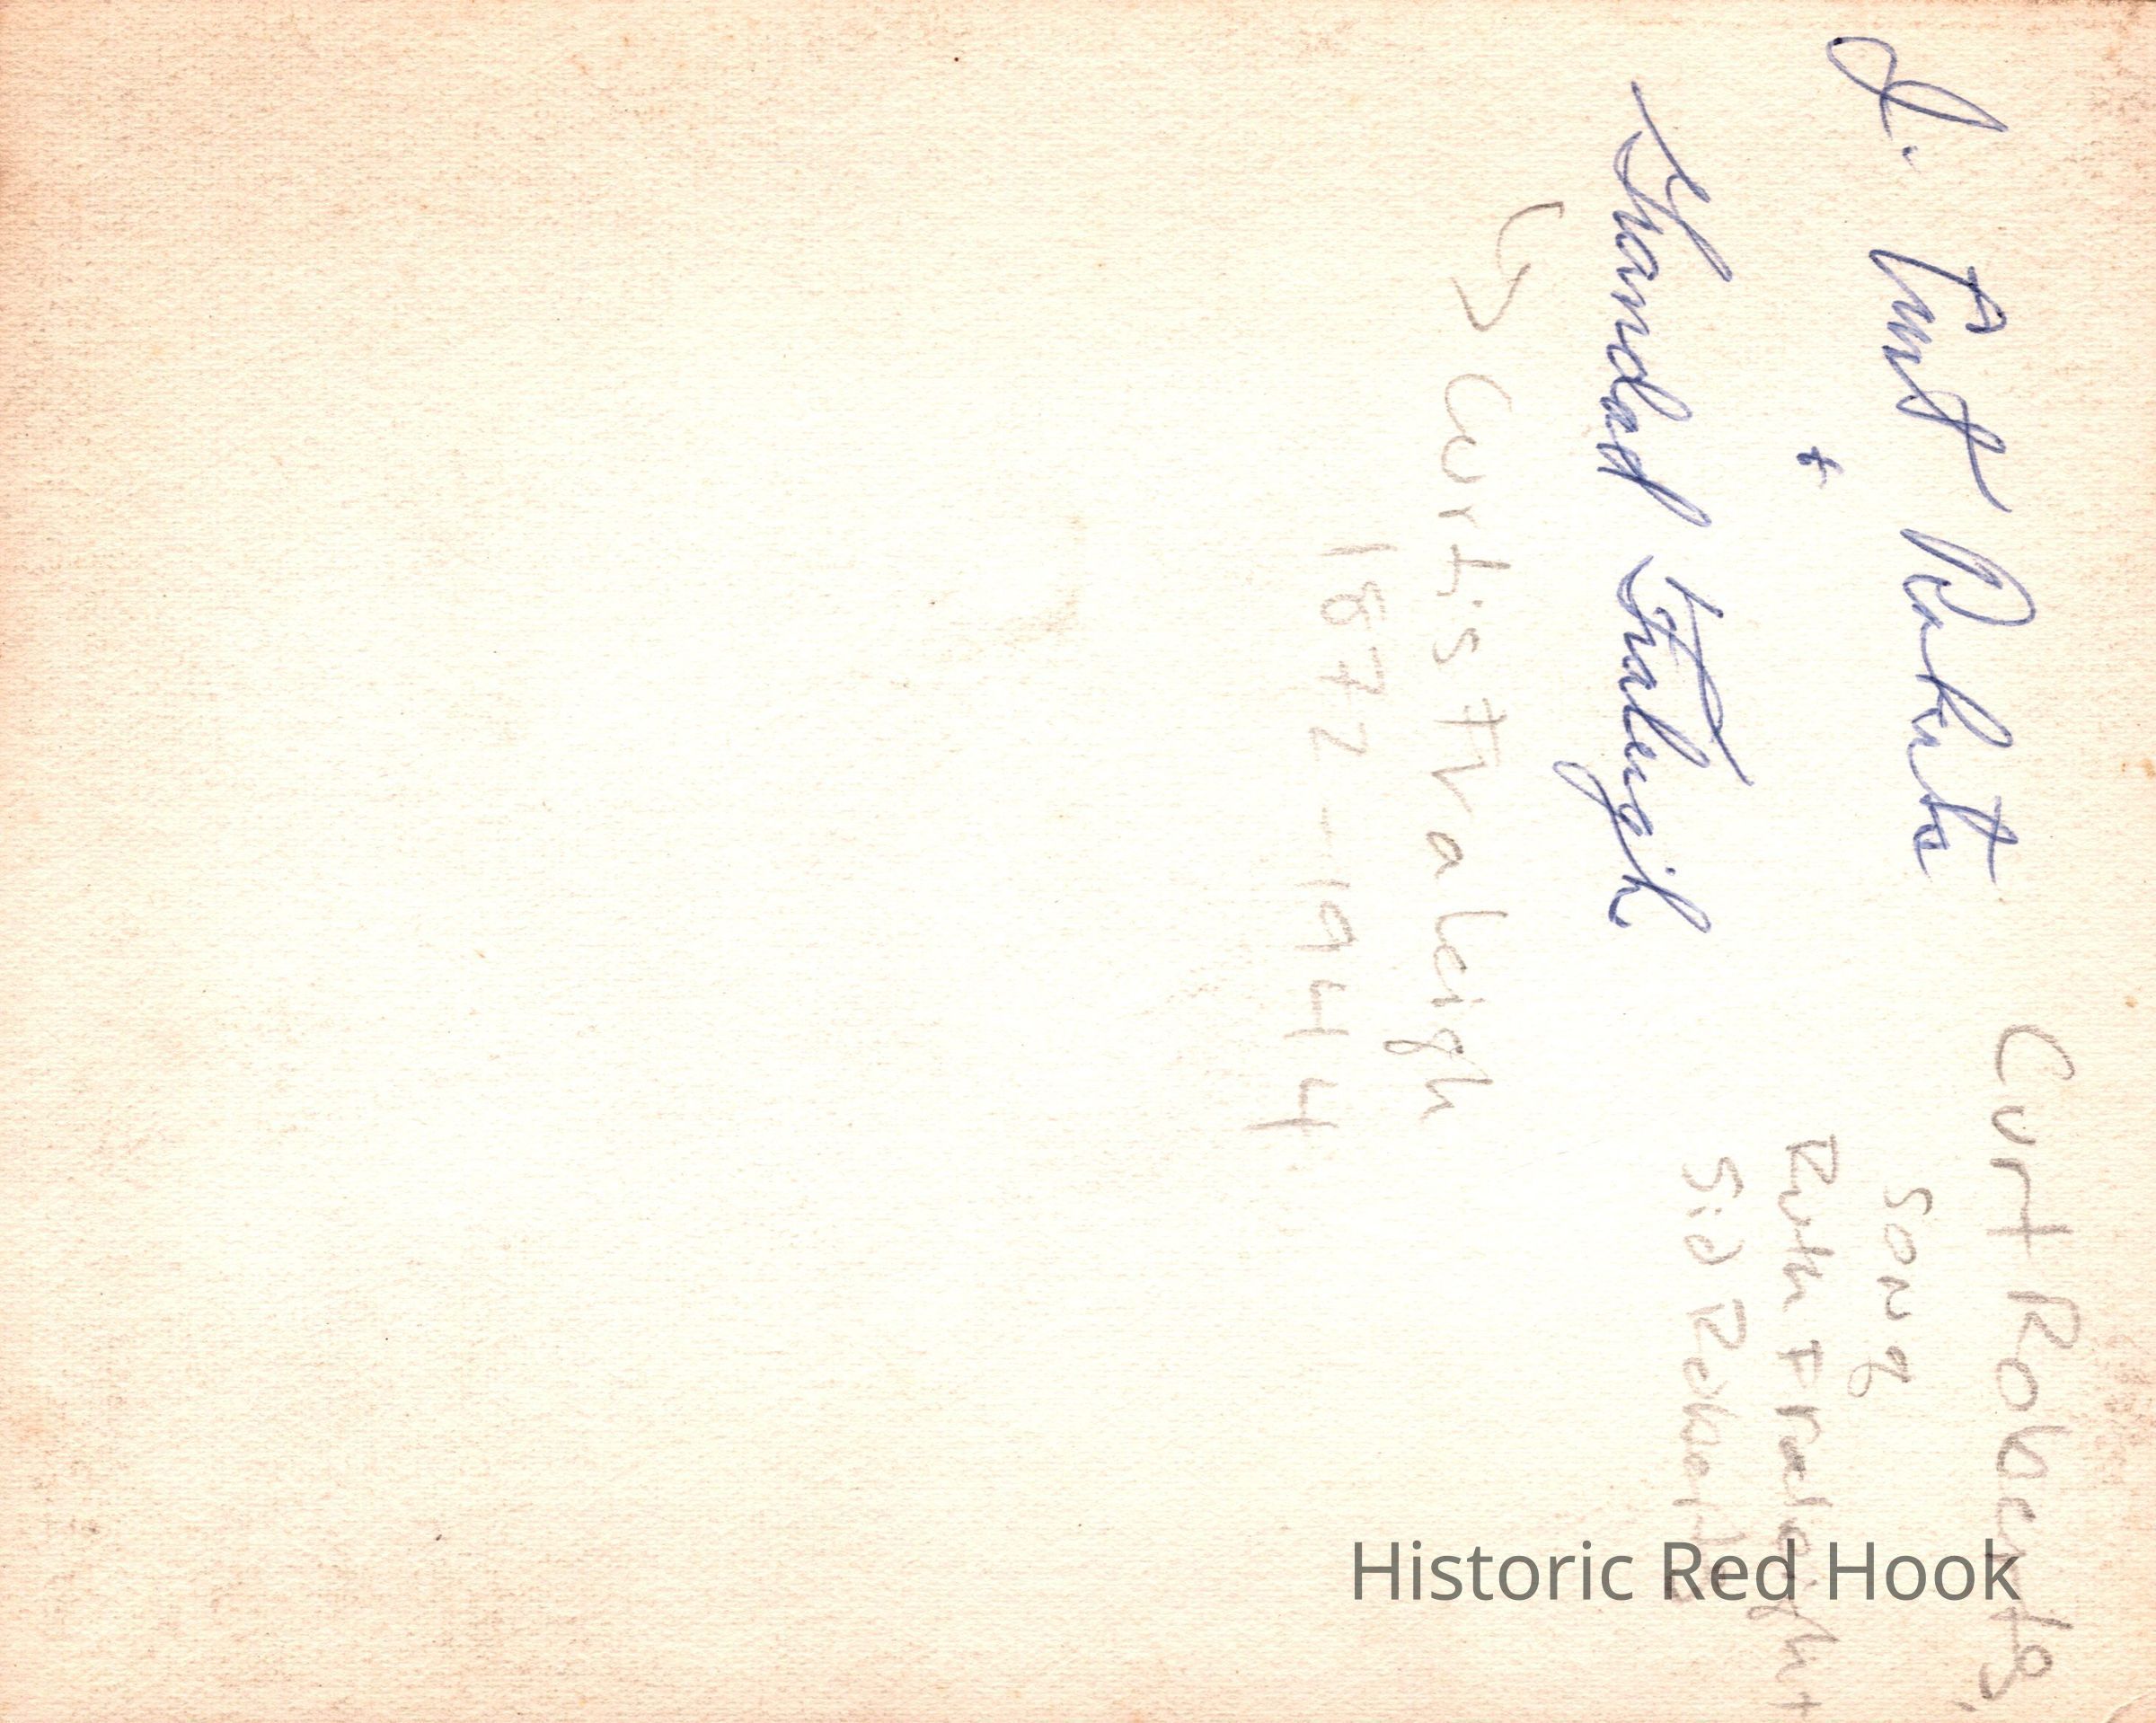 J. Curt Roberts
+
Grandad Fraleigh
↳ Curtis Fraleigh
1872 - 1944
Curt Roberts
son of
Ruth Fraleigh +
Sid Roberts
Historic Red Hook